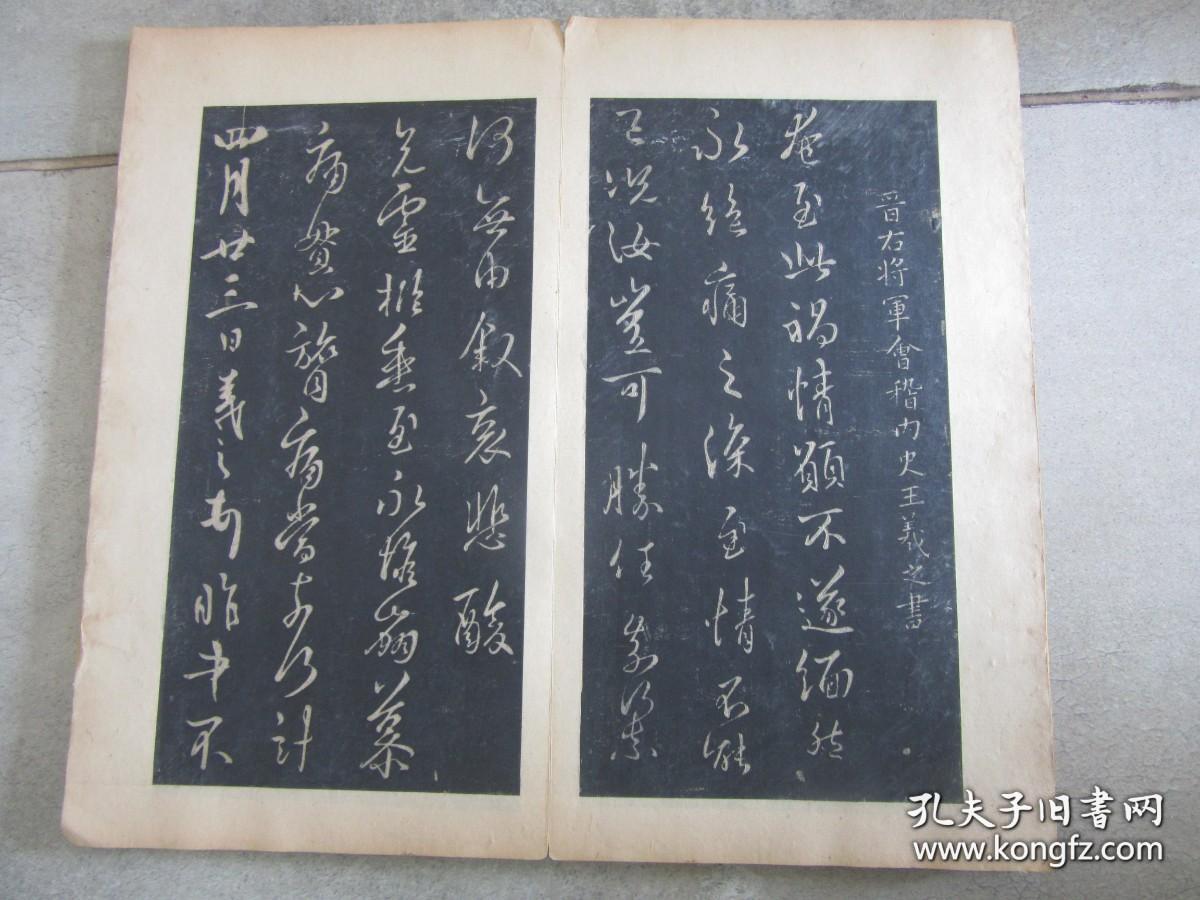 晋右將軍會稽内史王羲之書
奄至此禍情願不遂緬然
永絕痛之深至情不能
已況汝豈可勝任奈何奈
何無由敘哀悲酸
兄靈柩垂至永惟崩慕
痛貫心膂痛當奈何計
四月廿三日羲之頓首昨書不
孔夫子旧书网
www.kongfz.com